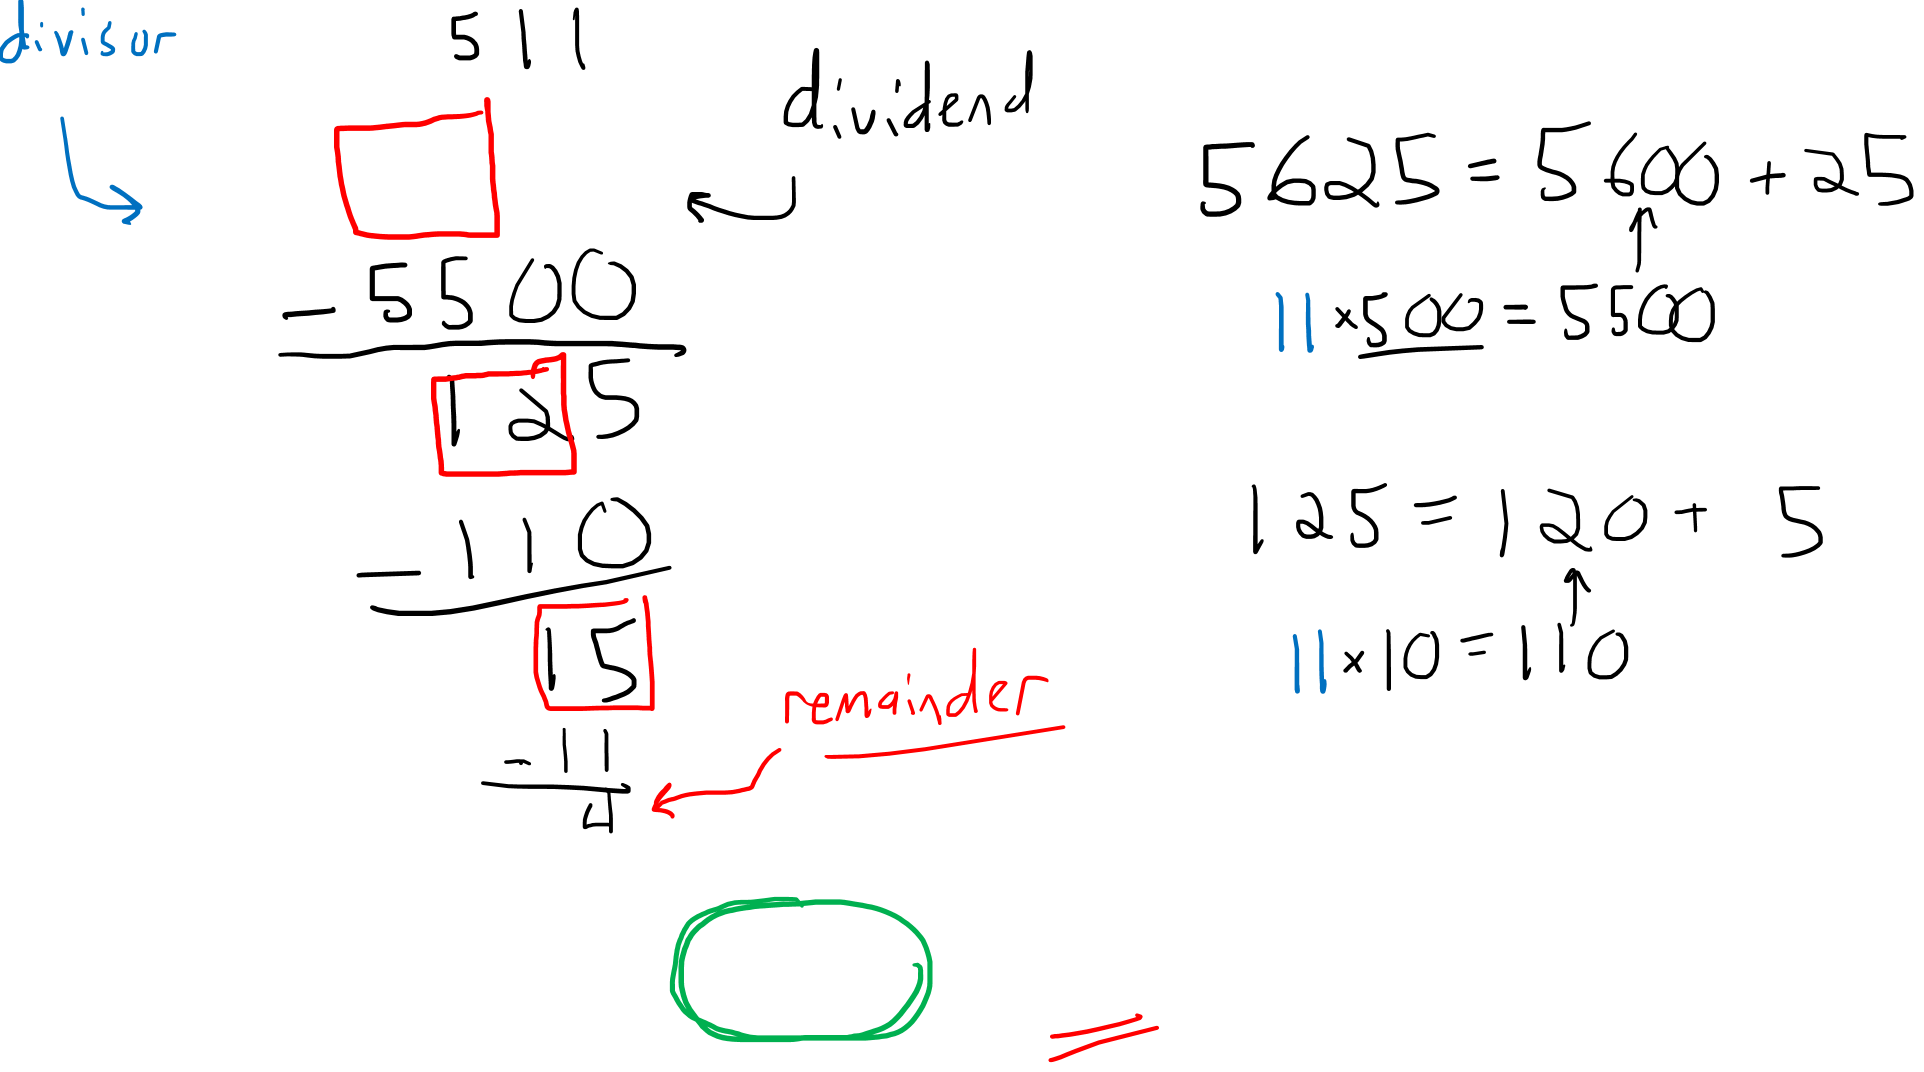 divisor
511
dividend
- 5500
125
- 110
15
- 11
4
remainder
5625 = 5600 + 25
11 × 500 = 5500
125 = 120 + 5
11 × 10 = 110